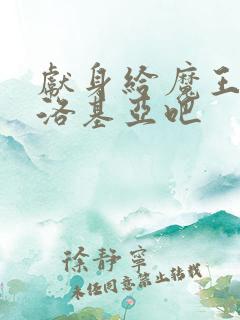 獻身給魔王
洛基亞吧
徐靜寧
未经同意禁止转载